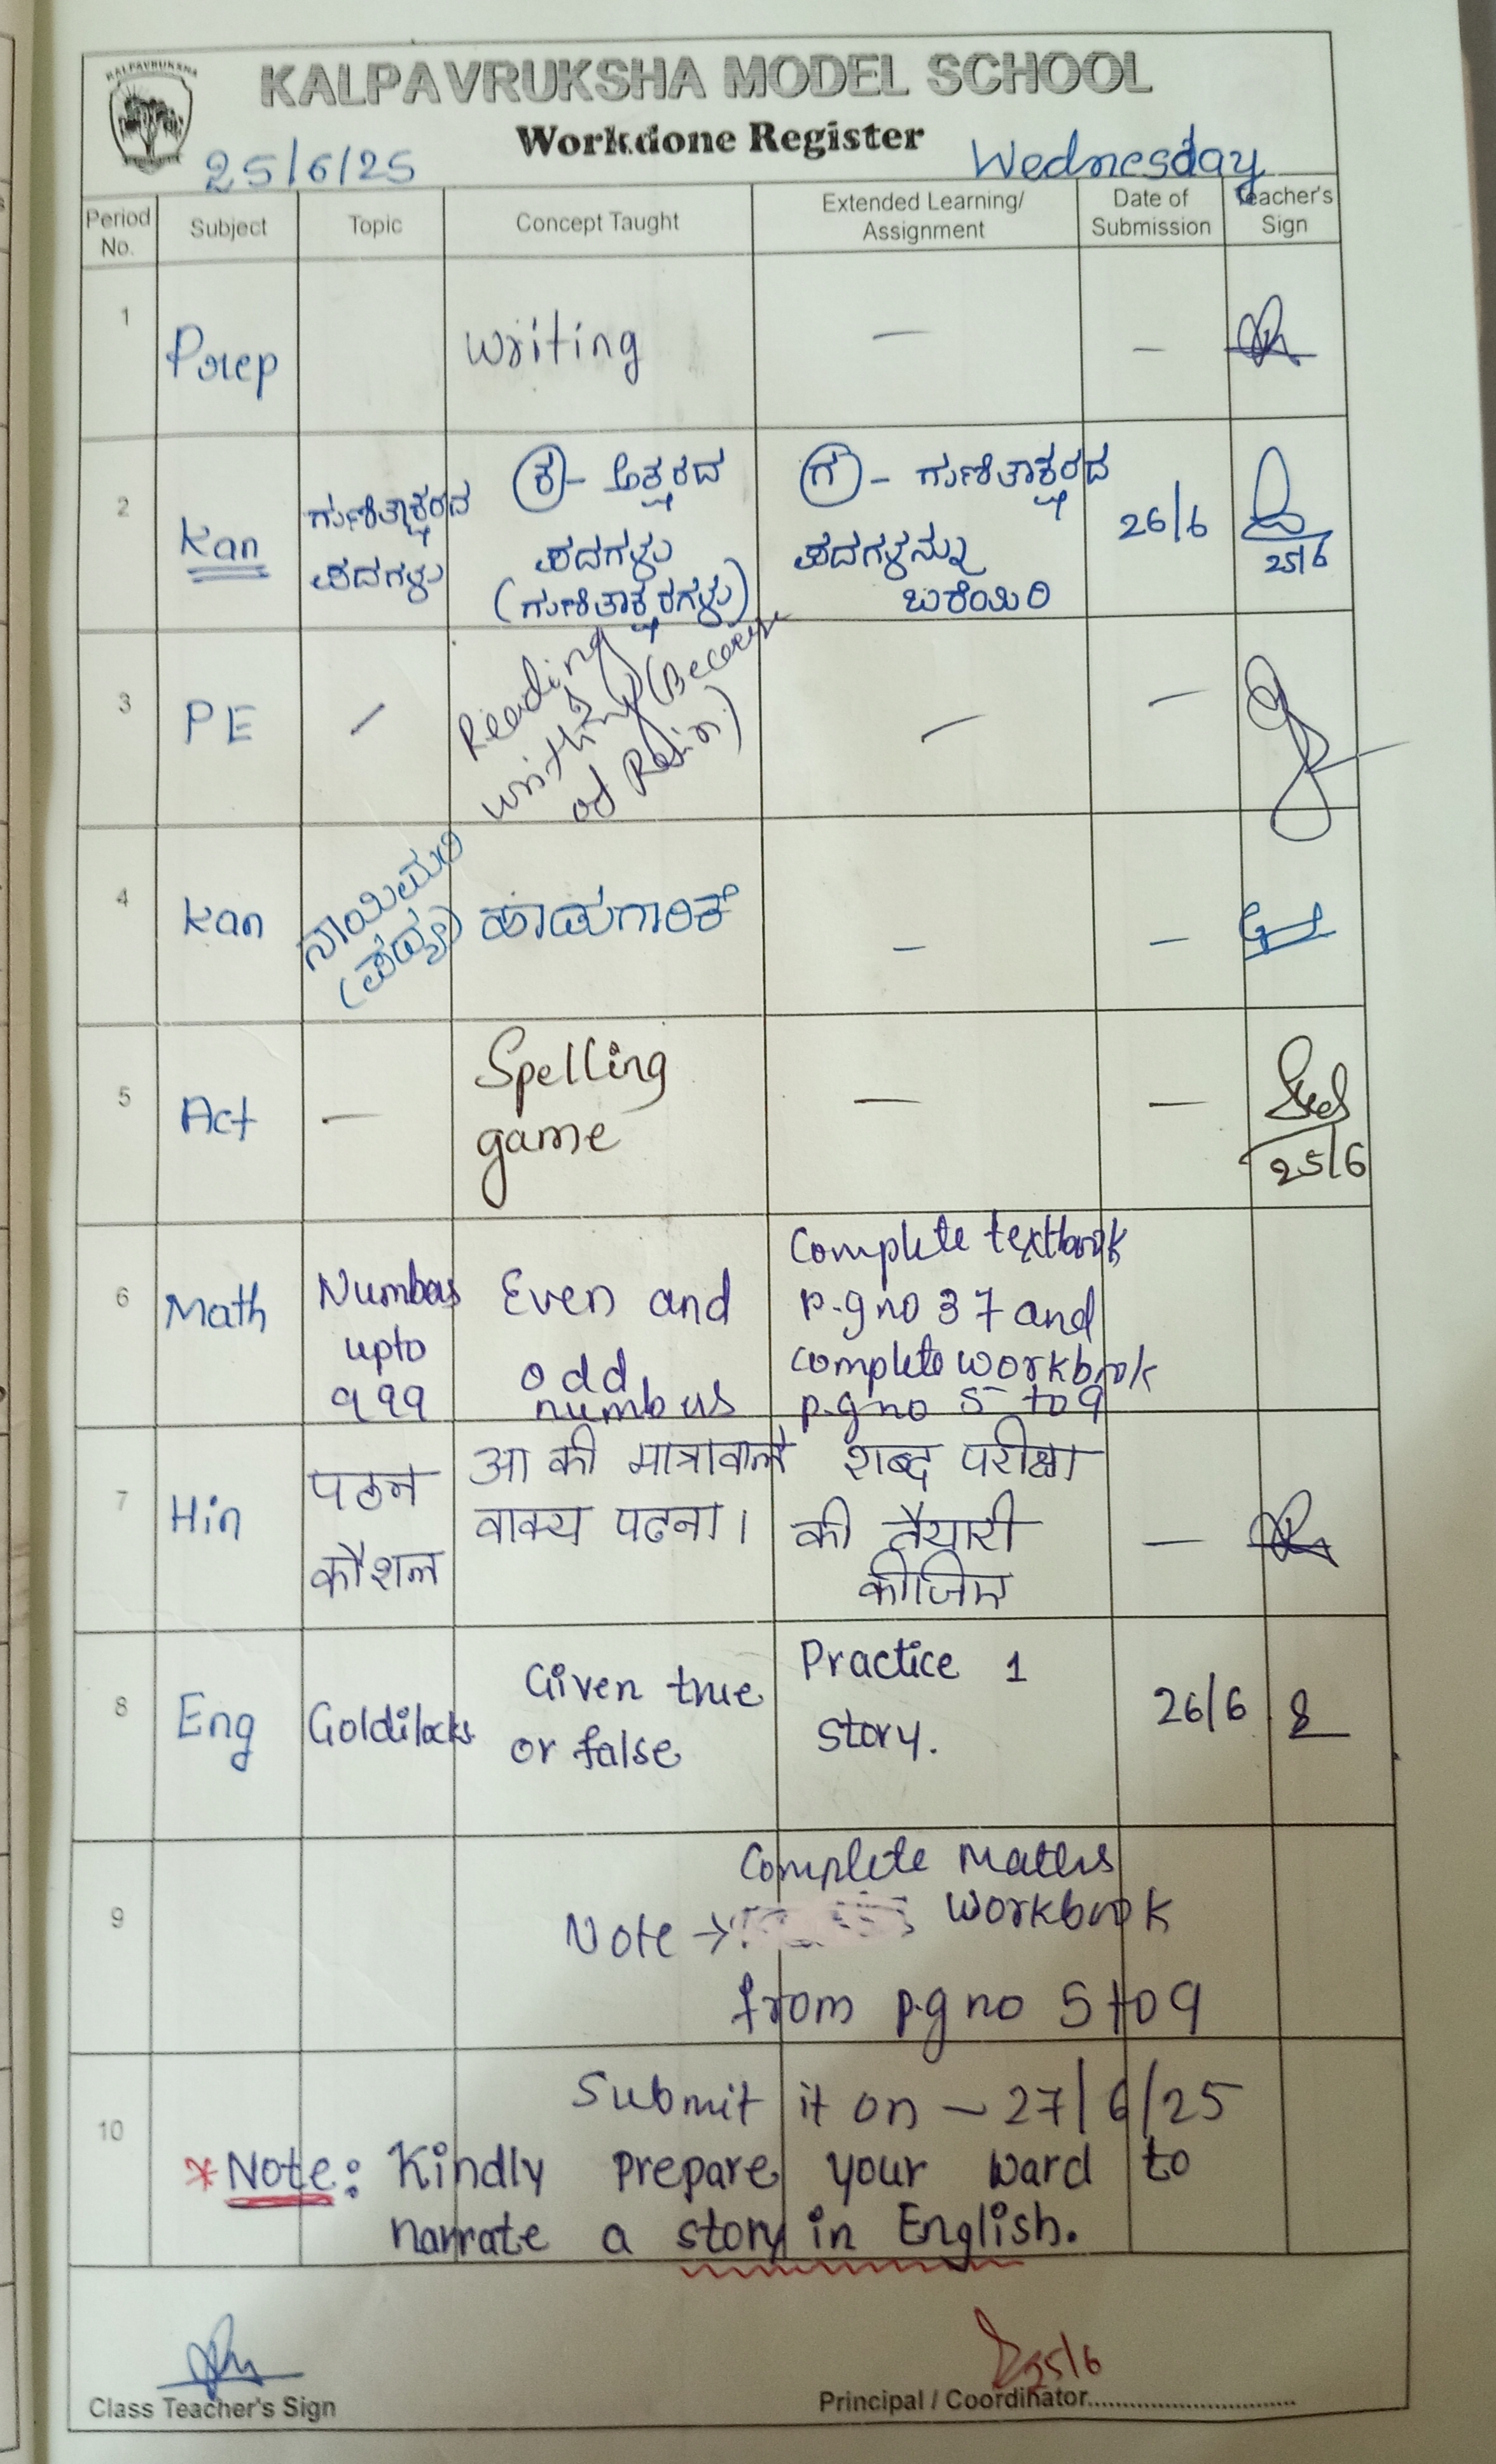 KALPAVRUKSHA
KALPAVRUKSHA MODEL SCHOOL
Workdone Register
25/6/25
Wednesday
Period No.
Subject
Topic
Concept Taught
Extended Learning/ Assignment
Date of Submission
Teacher's Sign
1
Prep
writing
—
—
2
Kan
ಗುಣಿತಾಕ್ಷರದ
ಪದಗಳು
ಕ - ಅಕ್ಷರದ
ಪದಗಳು
(ಗುಣಿತಾಕ್ಷರಗಳು)
ಗ - ಗುಣಿತಾಕ್ಷರದ
ಪದಗಳನ್ನು
ಬರೆಯಿರಿ
26/6
25/6
3
PE
—
Reading
&
writing (Because
of Rain)
—
—
4
Kan
ನಾಯಿಮರಿ
(ಪದ್ಯ)
ಹಾಡುಗಾರಿಕೆ
—
—
5
Act
—
Spelling
game
—
—
25/6
6
Math
Numbers
upto
999
Even and
odd
numbers
Complete textbook
p.g no 37 and
complete workbook
p.g no 5 to 9
7
Hin
पठन
कौशल
आ की मात्रावाले
वाक्य पढना।
शब्द परीक्षा
की तैयारी
कीजिए
—
8
Eng
Goldilocks
Given true
or false
Practice 1
story.
26/6
9
Complete Maths
Note → workbook
from p.g no 5 to 9
10
Submit it on - 27/6/25
*Note: Kindly prepare your ward to
narrate a story in English.
25/6
Class Teacher's Sign
Principal / Coordinator